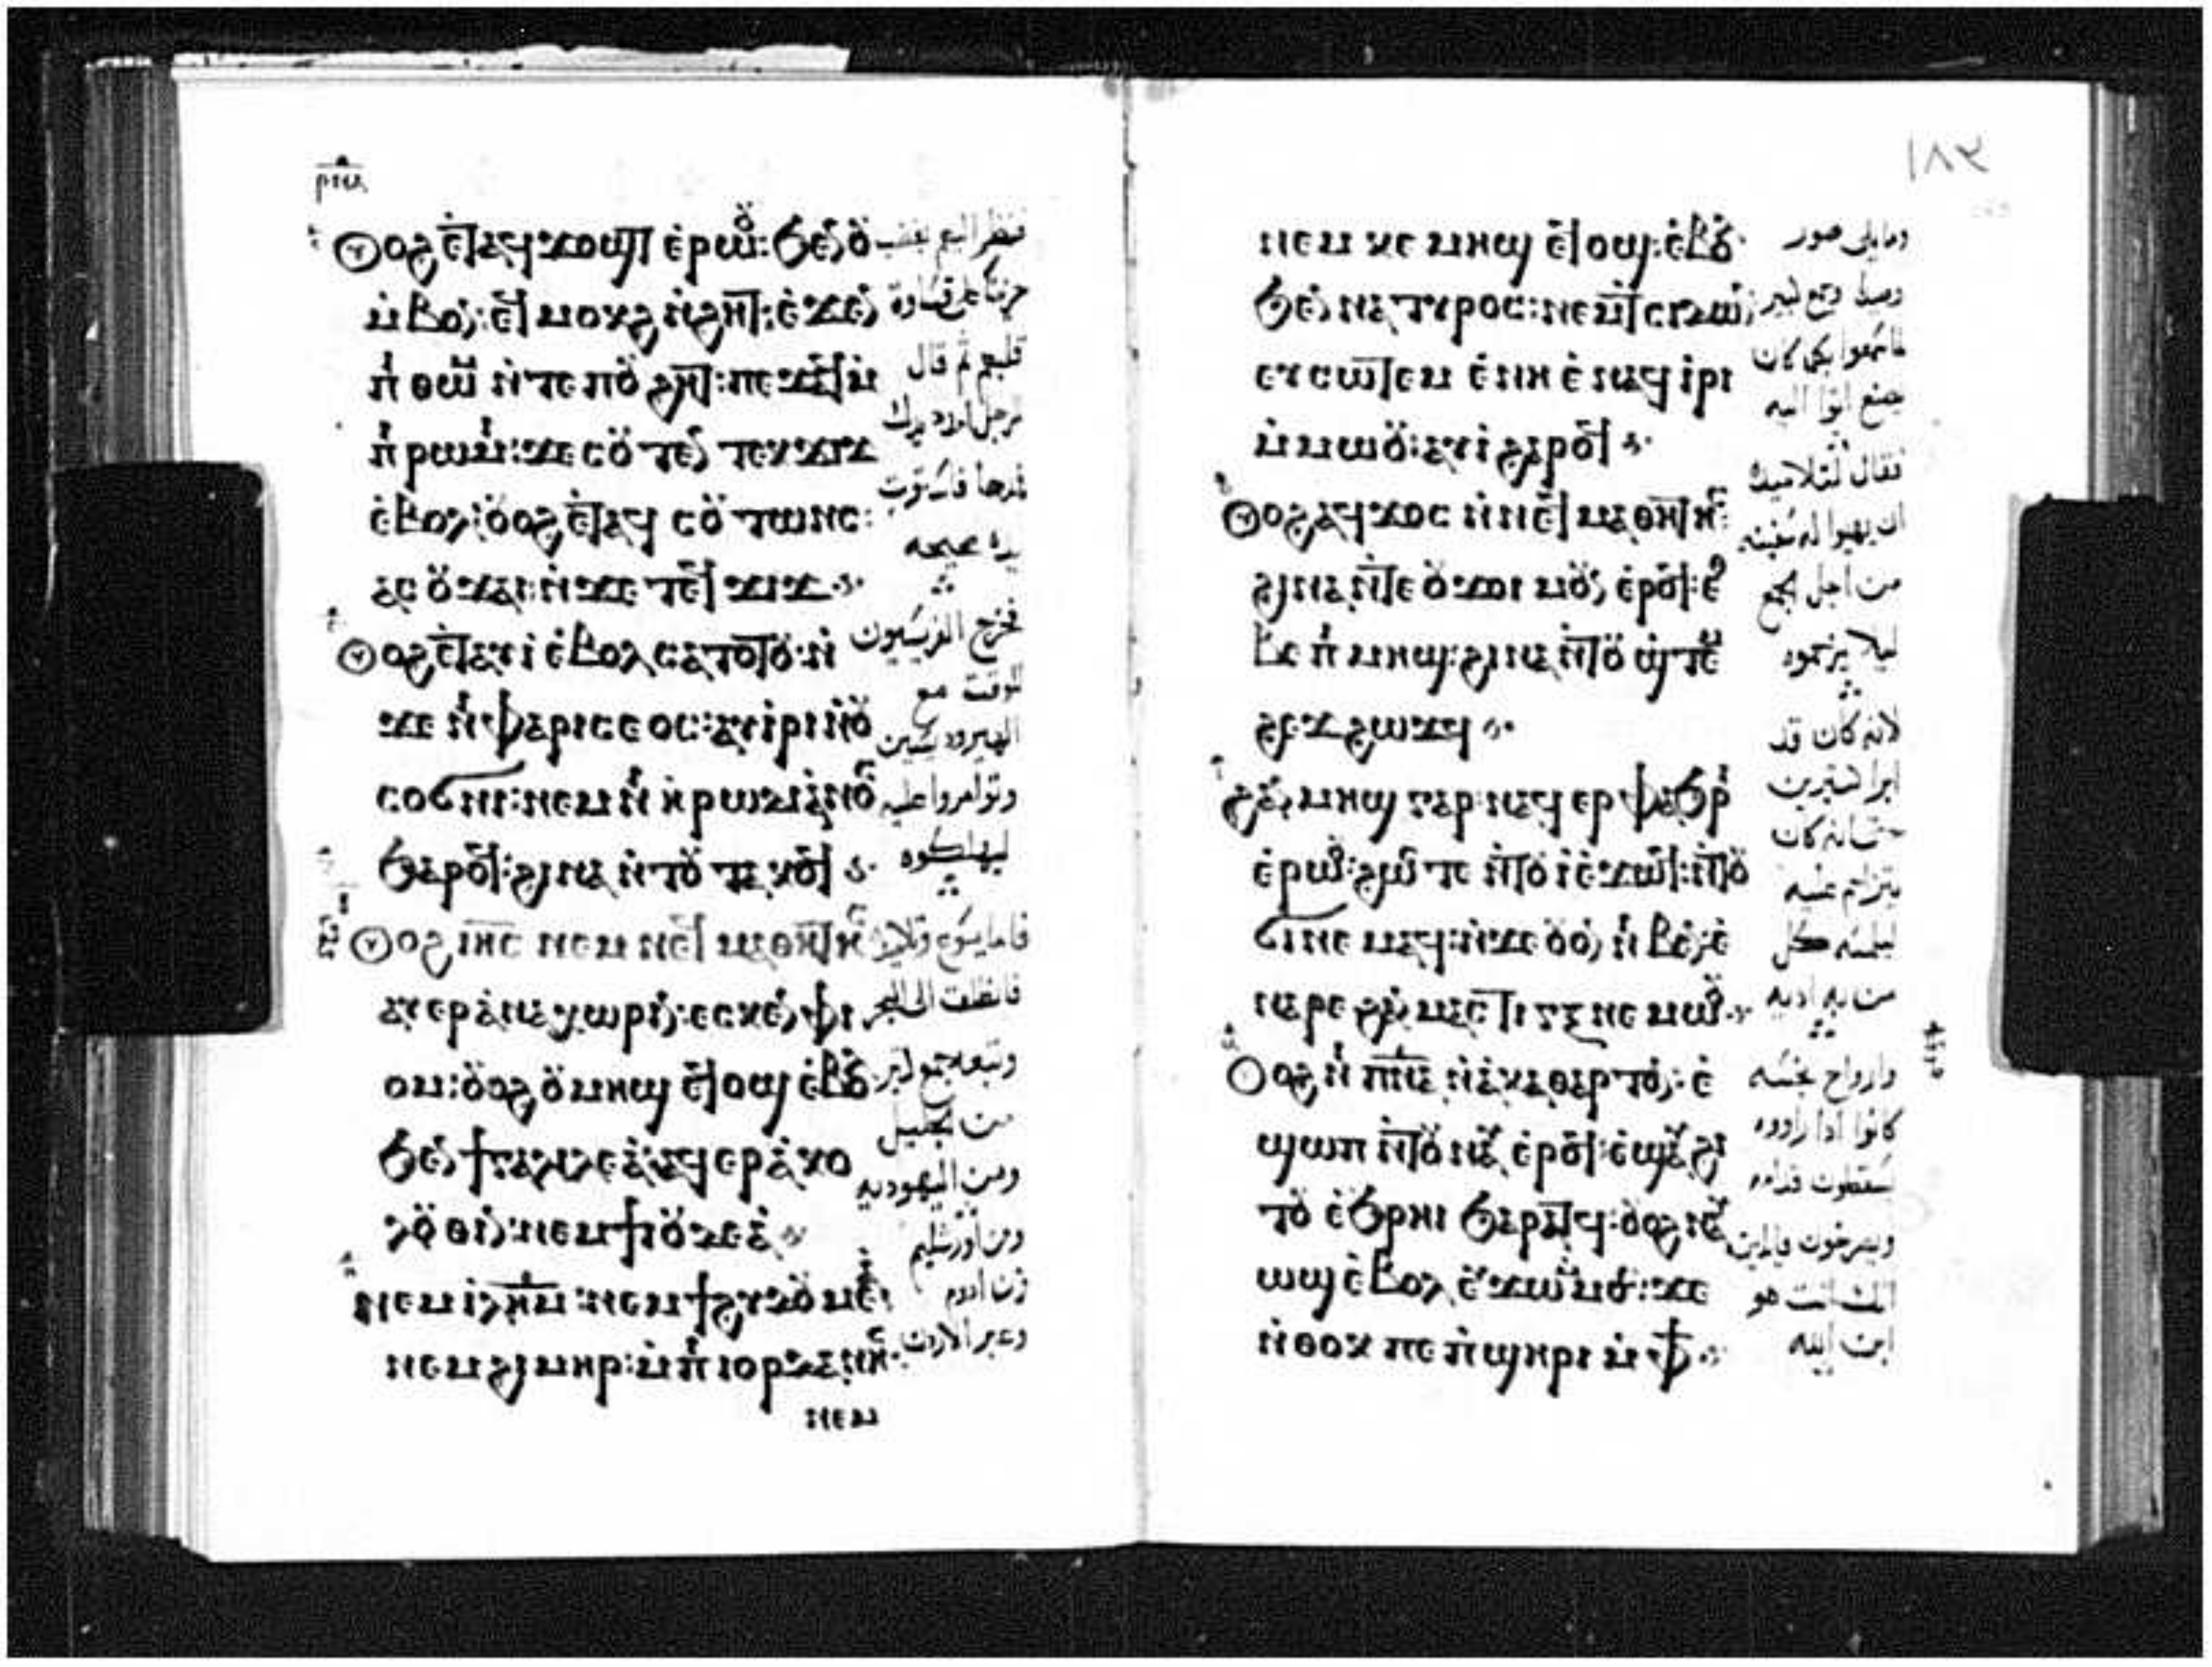 ⲣⲡⲁ
Ⲟⲩⲟϩ ⲉⲧⲁϥϫⲟⲩϣⲧ ⲉⲣⲱⲟⲩ: ϧⲉⲛ ⲟⲩ
ⲙ̀ⲃⲟⲛ: ⲉϥⲙⲟⲕϩ ⲛ̀ϩⲏⲧ: ⲉ̀ϫⲉⲛ
ⲡ̀ⲑⲱⲙ ⲛ̀ⲧⲉ ⲡⲟⲩϩⲏⲧ: ⲡⲉϫⲁϥ ⲙ̀
ⲡ̀ⲣⲱⲙⲓ: ϫⲉ ⲥⲟⲩⲧⲉⲛ ⲧⲉⲕϫⲓϫ
ⲉ̀ⲃⲟⲗ: ⲟⲩⲟϩ ⲉⲧⲁϥ ⲥⲟⲩⲧⲱⲛⲥ:
ⲁⲥⲟⲩϫⲁⲓ: ⲛ̀ϫⲉ ⲧⲉϥϫⲓϫ
Ⲟⲩⲟϩ ⲉⲧⲁⲩⲓ̀ ⲉ̀ⲃⲟⲗ ⲥⲁⲧⲟⲧⲟⲩ: ⲛ̀
ϫⲉ ⲛⲓⲫⲁⲣⲓⲥⲉⲟⲥ: ⲁⲩⲓ̀ⲣⲓ ⲛ̀ⲟⲩ
ⲥⲟϭⲛⲓ: ⲛⲉⲙ ⲛⲓⲏ̀ⲣⲱⲇⲓⲁ̀ⲛⲟⲥ
ϧⲁⲣⲟϥ: ϩⲓⲛⲁ ⲛ̀ⲧⲟⲩ ⲧⲁⲕⲟϥ
Ⲟⲩⲟϩ ⲓⲏⲥ ⲛⲉⲙ ⲛⲉϥ ⲙⲁⲑⲏⲧⲏⲥ
ⲁⲩⲉⲣⲁ̀ⲛⲁⲭⲱⲣⲓⲛ: ⲉⲥⲕⲉⲛ ⲫⲓ
ⲟⲙ: ⲟⲩⲟϩ ⲟⲩⲙⲏϣ ⲉϥⲟϣ ⲉ̀ⲃⲟⲗ
ϧⲉⲛ ϯⲅⲁⲗⲓⲗⲉⲁ̀: ⲛⲁϥⲉⲣⲁ̀ⲕⲟ
ⲗⲟⲩⲑⲓⲛ: ⲛⲉⲙ ϯⲓⲟⲩⲇⲉⲁ̀
ⲛⲉⲙ ⲓ̀ⲗⲏⲙ: ⲛⲉⲙ ϯϩⲩⲇⲟⲩⲙⲉⲁ̀
ⲛⲉⲙ ϩⲓⲙⲏⲣ: ⲙ̀ⲡⲓⲓⲟⲣⲇⲁⲛⲏⲥ:
ⲛⲉⲙ
فنظر اليهم بغضب
حزينا على قساوة
قلبهم ثم قال
للرجل امدد يدك
فمدها فاستوت
يده صحيحه
فخرج الفريسيون
للوقت مع
الهيرودسيين
وتوامروا عليه
ليهلكوه
فاما يسوع وتلاميذه
فانطلقت الى البحر
وتبعه جمع كثير
من الجليل
ومن اليهوديه
ومن اورشليم
ومن ادوم
وعبر الاردن
١٨٢
ⲛⲉⲙ ⲕⲉ ⲙⲏϣ ⲉϥⲟϣ: ⲉ̀ⲃⲟⲗ
ϧⲉⲛ ⲛⲁ ⲧⲩⲣⲟⲥ: ⲛⲉⲙ ⲧⲥⲓⲇⲱⲛ:
ⲉⲩⲥⲱⲧⲉⲙ ⲉ̀ⲛⲏ ⲉ̀ⲛⲁϥ ⲓ̀ⲣⲓ
ⲙ̀ⲙⲱⲟⲩ: ⲁⲩⲓ̀ ϩⲁⲣⲟϥ
Ⲟⲩⲟϩ ⲁϥϫⲟⲥ ⲛ̀ⲛⲉϥ ⲙⲁⲑⲏⲧⲏⲥ:
ϩⲓⲛⲁ ⲛ̀ⲧⲉ ⲟⲩϫⲟⲓ ⲙⲟⲩⲛ ⲉ̀ⲣⲟϥ: ⲉⲑ
ⲃⲉ ⲡⲓⲙⲏϣ: ϩⲓⲛⲁ ⲛ̀ⲧⲟⲩ ϣ̀ⲧⲉⲙ
ϩⲉϫ ϩⲱϫϥ
ϩⲁⲛⲙⲏϣ ⲅⲁⲣ: ⲛⲁϥ ⲉⲣ ⲫⲁϧⲣⲓ
ⲉ̀ⲣⲱⲟⲩ: ϩⲱⲥ ⲧⲉ ⲛ̀ⲧⲟⲩ ⲓ̀ ⲉ̀ϫⲱϥ: ⲛ̀ⲧⲟⲩ
ϭⲓⲛⲉⲙⲁϥ: ⲛ̀ϫⲉ ⲟⲩⲟⲛ ⲛⲓⲃⲉⲛ: ⲉ̀
ⲛⲁⲣⲉ ϩⲁⲛⲙⲁⲥⲧⲓⲅⲝ ⲛⲉⲙⲱⲟⲩ
Ⲟⲩⲟϩ ⲛⲓⲡ̅ⲛ̅ⲁ̅ ⲛ̀ⲁ̀ⲕⲁⲑⲁⲣⲧⲟⲛ: ⲉ̀
ϣⲱⲡ ⲛ̀ⲧⲟⲩ ⲛⲁⲩ ⲉ̀ⲣⲟϥ: ⲉ̀ϣⲁⲩϩⲓ
ⲧⲟⲩ ⲉ̀ϧⲣⲏⲓ ϧⲁⲣⲁⲧϥ: ⲟⲩⲟϩ ⲛⲁⲩ
ⲱϣ ⲉ̀ⲃⲟⲗ ⲉⲩϫⲱ ⲙ̀ⲙⲟⲥ: ϫⲉ
ⲛ̀ⲑⲟⲕ ⲡⲉ ⲡ̀ϣⲏⲣⲓ ⲙ̀ⲫϯ
وما يلى صور
وصيدا وجمع كثير
فاسمعوا بكل ما كان
يصنع اتوا اليه
فقال لتلاميذه
ان يهيوا له سفينه
من اجل الجمع
ليلا يزحموه
لانه كان قد
ابرا كثيرين
حتى انه كان
يتزاحم عليه
ليلمسه كل
من به اديه
وارواح نجسه
كانوا اذا راووه
سقطوت قدامه
ويصرخون قايلين
انك انت هو
ابن الله